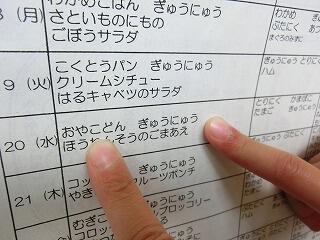 わかめごはん　ぎゅうにゅう
さといものにもの
ごぼうサラダ
(月)
わかめ　ぎゅ
ぶたにく　あつ
まぐろのみずに
9 (火)
こくとうパン　ぎゅうにゅう
クリームシチュー
はるキャベツのサラダ
ぎゅうにゅう　とりに
ハム
20 (水)
おやこどん　ぎゅうにゅう
ほうれんそうのごまあえ
とりにく　かまぼこ
たまご　ぎゅうにゅう
21 (木)
コッ　ぎゅうにゅう
やき　ルーツポンチ
ハム
むぎご　ゅう
コロッ　ブロッコリー